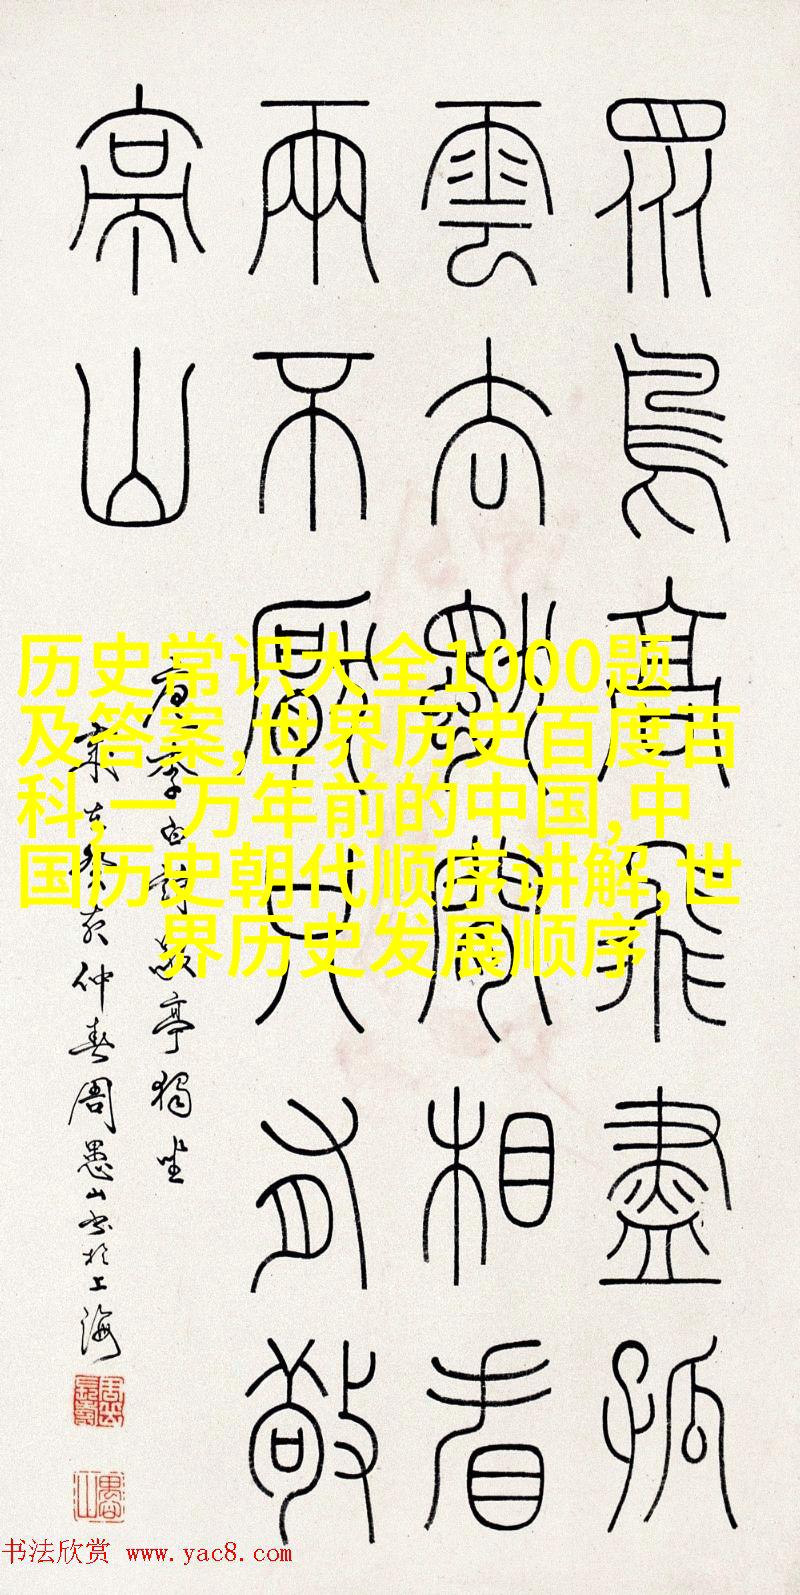 历史常识大全1000题
及答案,世界历史百度百
科,一万年前的中国,中
国历史朝代顺序讲解,世
界历史发展顺序
眾鳥高飛盡孤
雲去相看
兩不厭只有敬
亭山
李白詩敬亭獨坐
歲在癸亥仲春周愚山书於上海
书法欣赏 www.yac8.com